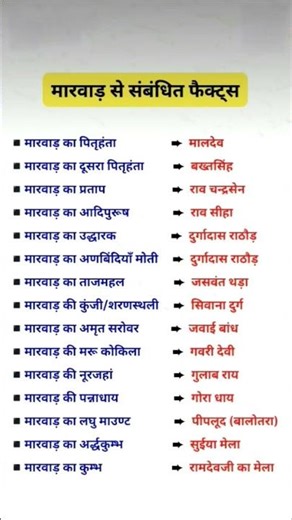 मारवाड़ से संबंधित फैक्ट्स
▪मारवाड़ का पितृहंता ➨ मालदेव
▪मारवाड़ का दूसरा पितृहंता ➨ बख्तसिंह
▪मारवाड़ का प्रताप ➨ राव चन्द्रसेन
▪मारवाड़ का आदिपुरूष ➨ राव सीहा
▪मारवाड़ का उद्धारक ➨ दुर्गादास राठौड़
▪मारवाड़ का अणबिंदियाँ मोती ➨ दुर्गादास राठौड़
▪मारवाड़ का ताजमहल ➨ जसवंत थड़ा
▪मारवाड़ की कुंजी/शरणस्थली ➨ सिवाना दुर्ग
▪मारवाड़ का अमृत सरोवर ➨ जवाई बांध
▪मारवाड़ की मरू कोकिला ➨ गवरी देवी
▪मारवाड़ की नूरजहां ➨ गुलाब राय
▪मारवाड़ की पन्नाधाय ➨ गोरा धाय
▪मारवाड़ का लघु माउण्ट ➨ पीपलूद (बालोतरा)
▪मारवाड़ का अर्द्धकुम्भ ➨ सुईया मेला
▪मारवाड़ का कुम्भ ➨ रामदेवजी का मेला